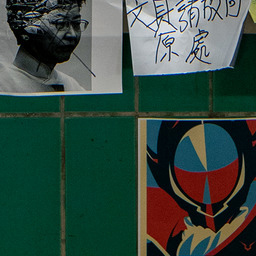 文具請放回
原處